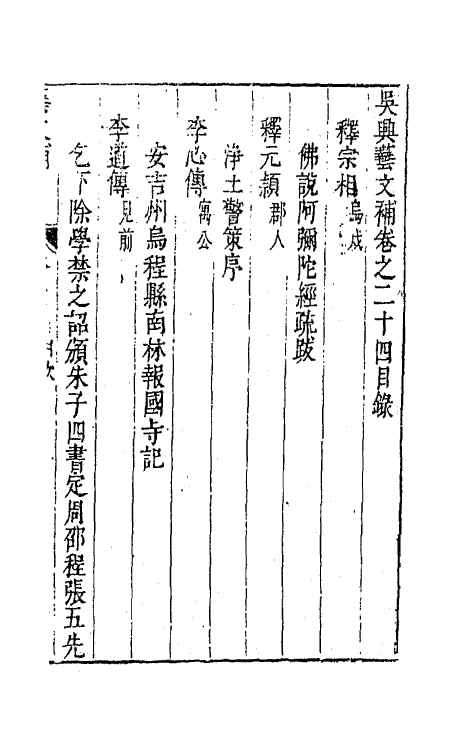 吳興藝文補卷之二十四目錄
釋宗相烏戍
佛說阿彌陀經疏跋
釋元頴郡人
淨土警策序
李心傳寓公
安吉州烏程縣南林報國寺記
李道傳見前
乞下除學禁之詔頒朱子四書定周邵程張五先